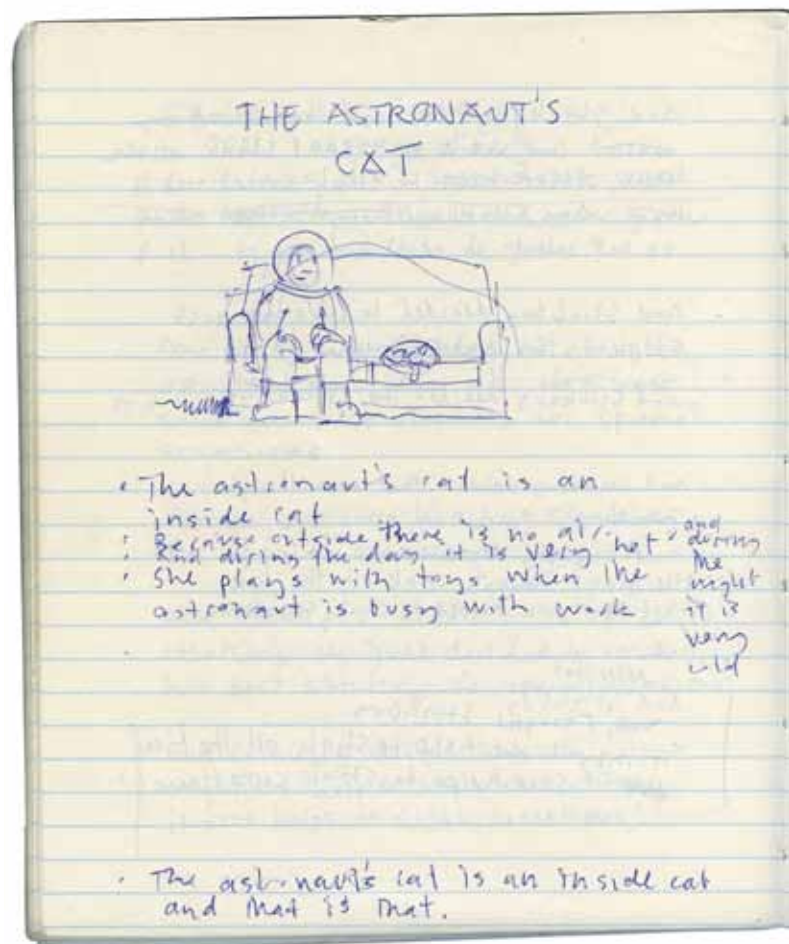 THE ASTRONAUT'S
CAT
• The astronaut's cat is an
inside cat
• Because outside there is no air.
• And during the day it is very hot and
during
the
night
it is
very
cold
• She plays with toys when the
astronaut is busy with work
• The astronaut's cat is an inside cat
and that is that.